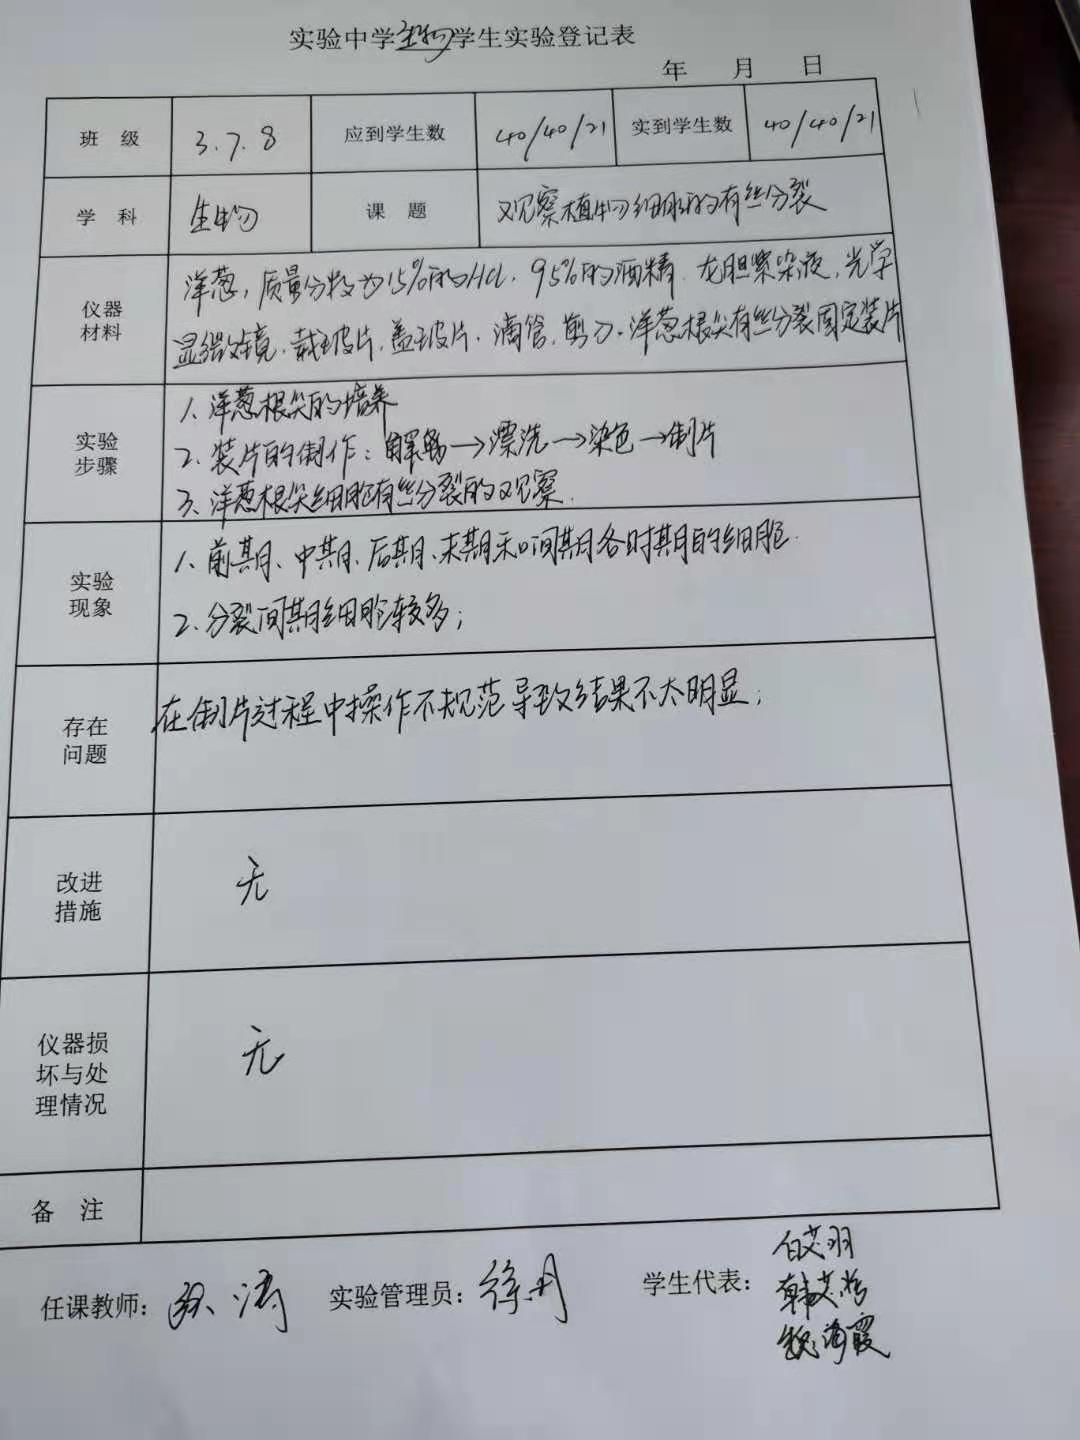 实验中学生物学生实验登记表
年 月 日
班 级 3.7.8 应到学生数 40/40/21 实到学生数 40/40/21
学 科 生物 课 题 观察植物细胞的有丝分裂
仪器
材料
洋葱，质量分数为15%的HCl．95%的酒精．龙胆紫染液，光学
显微镜．载玻片．盖玻片．滴管．剪刀．洋葱根尖有丝分裂固定装片
实验
步骤
1、洋葱根尖的培养
2、装片的制作：解离→漂洗→染色→制片
3、洋葱根尖细胞有丝分裂的观察．
实验
现象
1、前期、中期、后期、末期和间期各时期的细胞．
2、分裂间期细胞较多；
存在
问题
在制片过程中操作不规范导致结果不太明显；
改进
措施
无
仪器损
坏与处
理情况
无
备 注
任课教师： 涛 实验管理员：徐丹 学生代表：